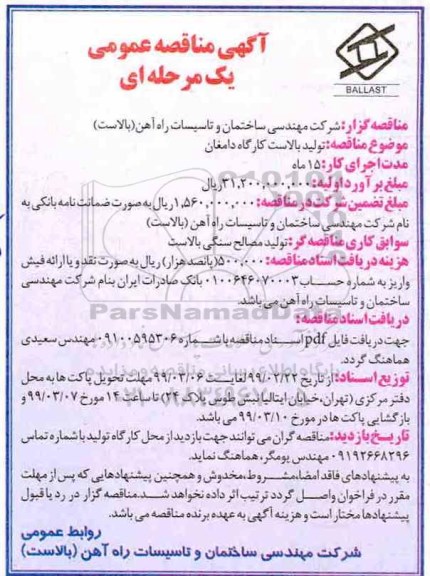 آگهی مناقصه عمومی
یک مرحله ای
BALLAST
مناقصه گزار: شرکت مهندسی ساختمان و تاسیسات راه آهن (بالاست)
موضوع مناقصه: تولید بالاست کارگاه دامغان
مدت اجرای کار: ۱۵ ماه
مبلغ برآورد اولیه: ۳۱,۲۰۰,۰۰۰,۰۰۰ ریال
مبلغ تضمین شرکت در مناقصه: ۱,۵۶۰,۰۰۰,۰۰۰ ریال به صورت ضمانت نامه بانکی به
نام شرکت مهندسی ساختمان و تاسیسات راه آهن (بالاست)
سوابق کاری مناقصه گر: تولید مصالح سنگی بالاست
هزینه دریافت اسناد مناقصه: ۵۰۰,۰۰۰ (پانصد هزار) ریال به صورت نقد و یا ارائه فیش
واریز به شماره حساب ۰۱۰۰۶۴۶۰۷۰۰۰۳ بانک صادرات ایران بنام شرکت مهندسی
ساختمان و تاسیسات راه آهن می باشد.
ParsNamadData
دریافت اسناد مناقصه:
جهت دریافت فایل pdf اسناد مناقصه با شماره ۰۹۱۰۰۵۹۵۳۰۶ مهندس سعیدی
هماهنگ گردد.
توزیع اسناد: از تاریخ ۹۹/۰۲/۲۲ لغایت ۹۹/۰۳/۰۶ مهلت تحویل پاکت ها به محل
دفتر مرکزی (تهران، خیابان ایتالیا نبش طوس پلاک ۲۴) تا ساعت ۱۴ مورخ ۹۹/۰۳/۰۷ و
بازگشایی پاکت ها در مورخ ۹۹/۰۳/۱۰ می باشد.
تاریخ بازدید: مناقصه گران می توانند جهت بازدید از محل کارگاه تولید با شماره تماس
۰۹۱۹۲۶۶۸۲۹۶ مهندس یومگر، هماهنگ نماید.
به پیشنهادهای فاقد امضاء، مشروط، مخدوش و همچنین پیشنهادهایی که پس از مهلت
مقرر در فراخوان واصل گردد ترتیب اثر داده نخواهد شد. مناقصه گزار در رد یا قبول
پیشنهادها مختار است و هزینه آگهی به عهده برنده مناقصه می باشد.
روابط عمومی
شرکت مهندسی ساختمان و تاسیسات راه آهن (بالاست)